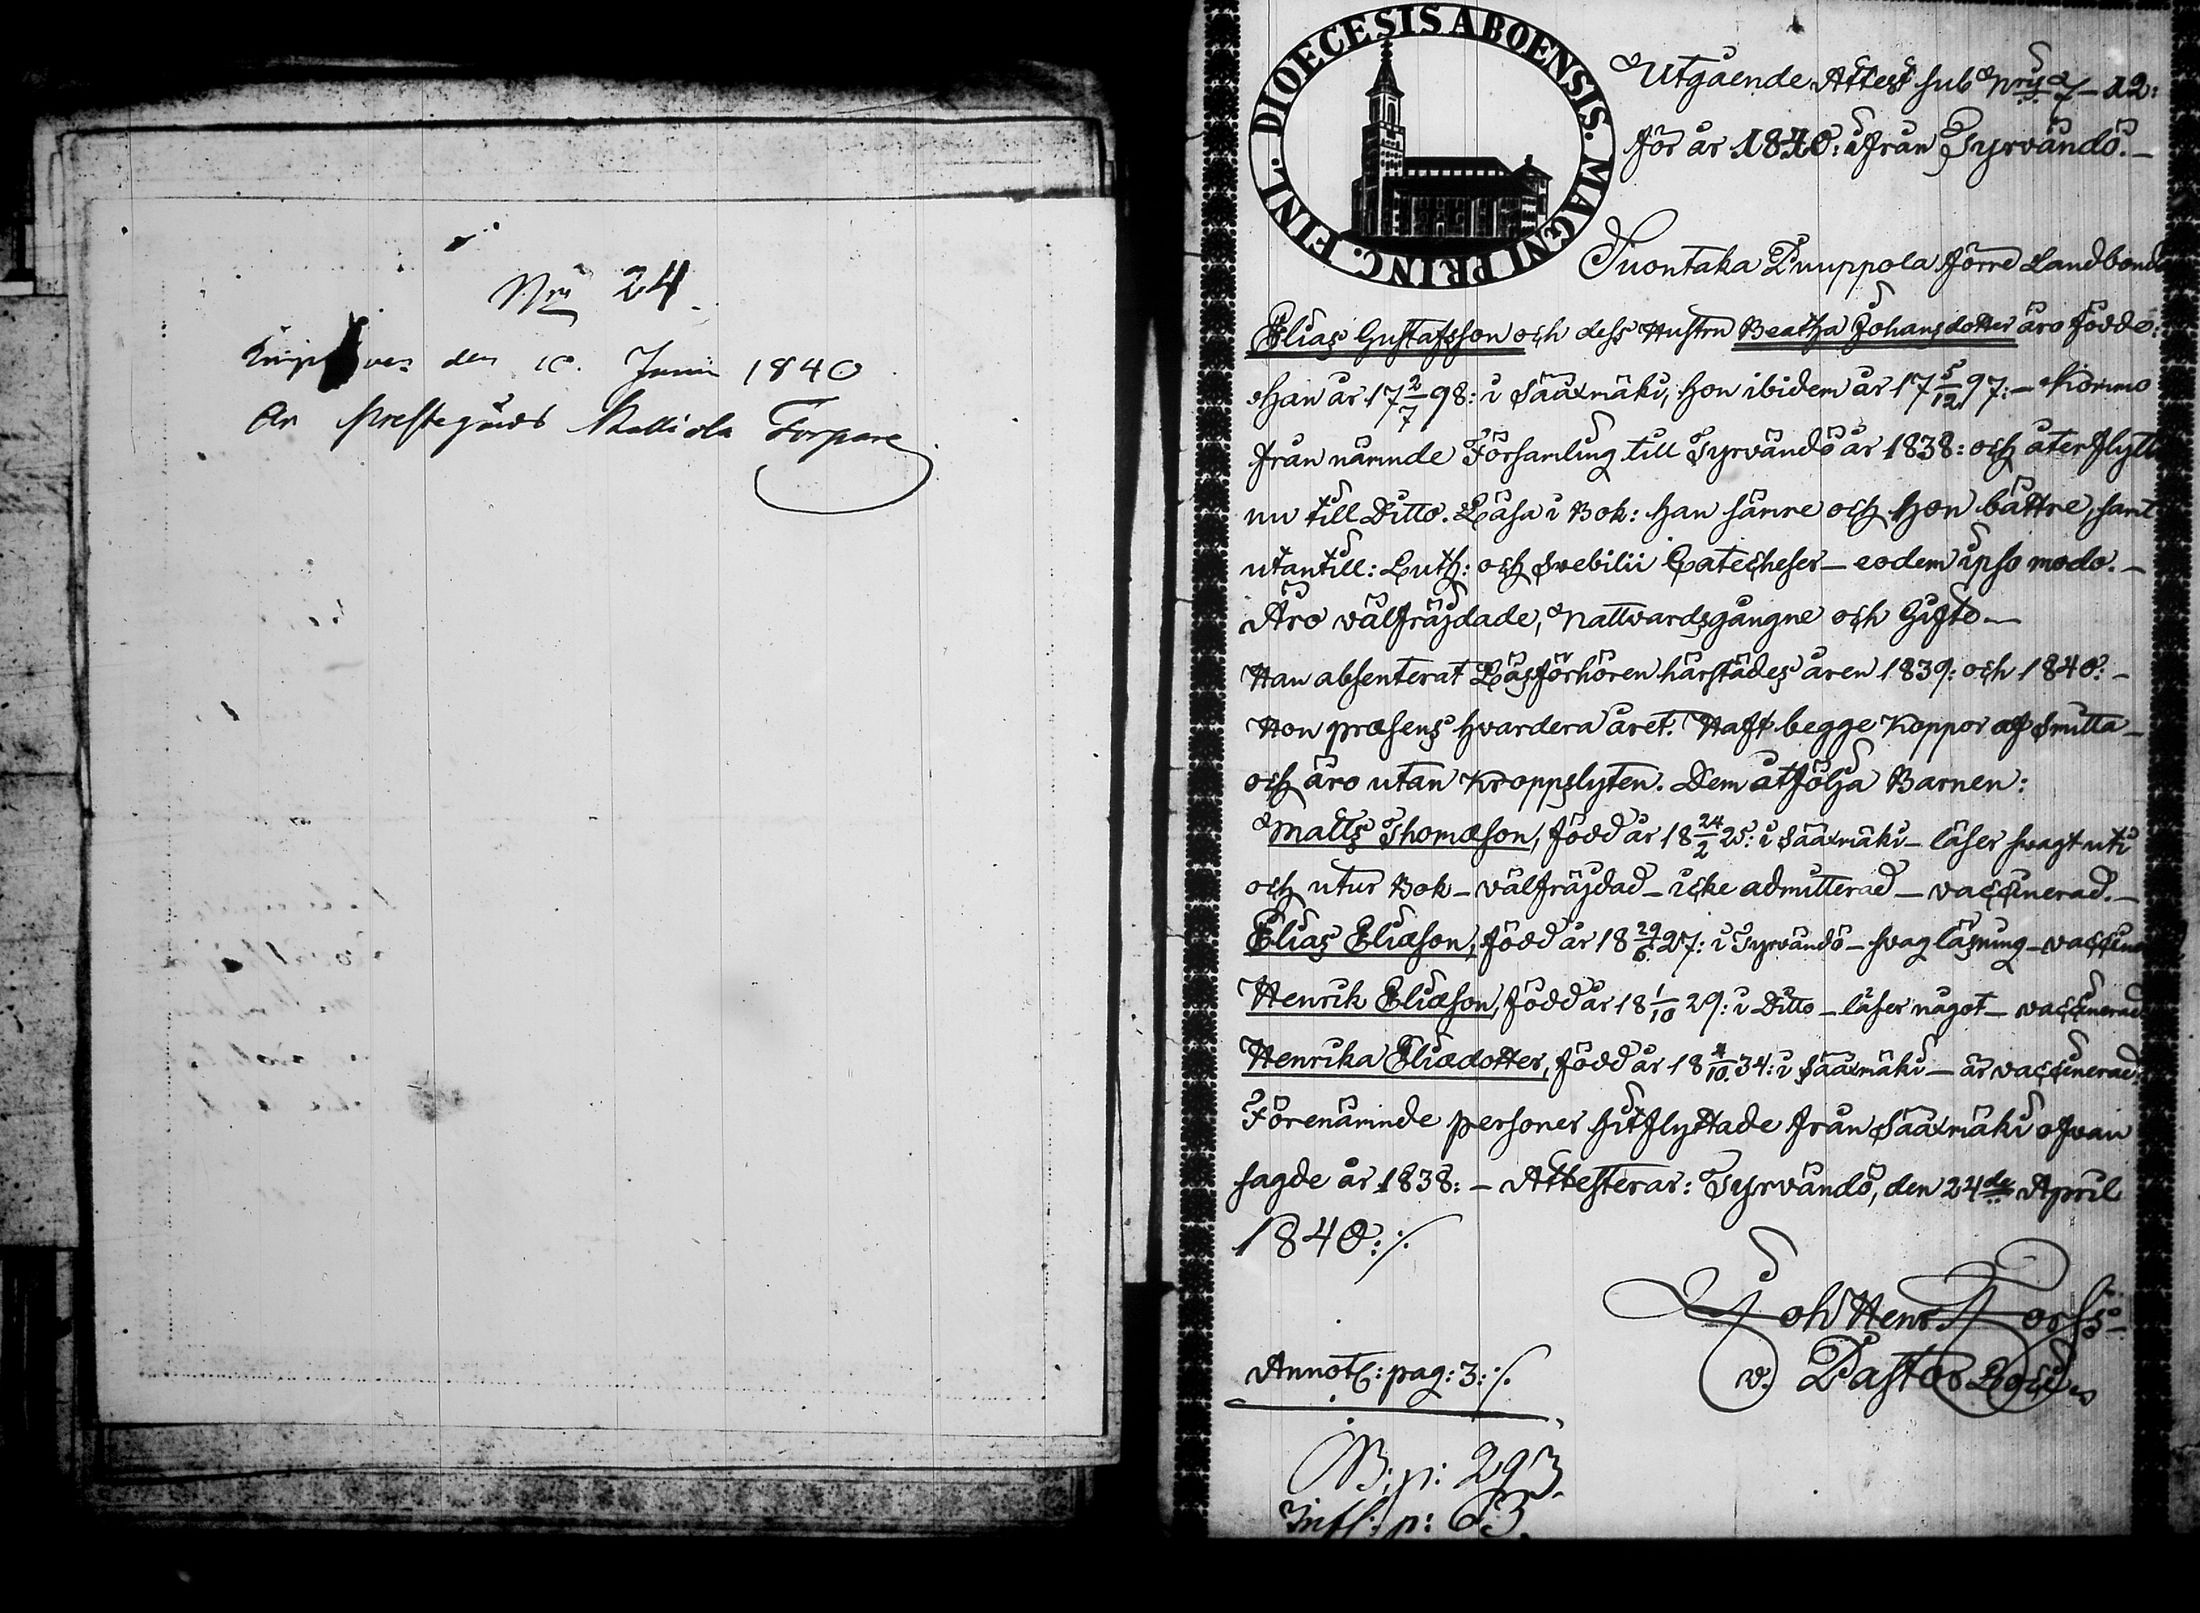 Nris 24
den 10. Junii 1840
Torpare
FINL. DIOECESIS ABOENSIS. MAGNI PRINC.
Utgående Attest sub Nris 7–12:
för år 1840: ifrån Tyrvändö.–
Suontaka Puuppola förre Landbonde
Elias Gustafsson och dess Hustru Beatha Johansdotter äro födde:
Han år 17 2/7 98: i Sääxmäki, hon ibidem år 17 5/12 97:– Kommo
från nämnde Församling till Tyrvändö år 1838: och återflytta
nu till Ditto. Läsa i Bok: han sämre och hon bättre, samt
utantill: Luth: och Svebilii Catecheser – eodem ipso modo.–
Äro välfräjdade, Nattvardsgångne och Gifte.–
Han absenterat Läsförhören härstädes åren 1839: och 1840:–
Hon præsens hvardera året. Haft begge Koppor af Smitta–
och äro utan Kroppslyten. Dem åtfölja Barnen:
Matts Thomæson, född år 18 24/2 25: i Sääxmäki – läser svagt uti
och utur Bok – välfräjdad – icke admitterad – vaccinerad.–
Elias Eliæson, född år 18 29/6 27: i Tyrvändö – svag läsning – vaccine
Henrik Eliæson, född år 18 1/10 29: i Ditto – läser något – vaccinerad
Henrika Eliædotter, född år 18 4/10 34: i Sääxmäki – är vaccinerad:
Förenämnde personer hitflyttade från Sääxmäki ofvan
sagde år 1838:– Attesterar: Tyrvändö, den 24de April
1840:⁒
Joh Henr Forss
v. Pastor
Annot: pag: 3:⁒
B: p: 293.
Infl: p: 63.